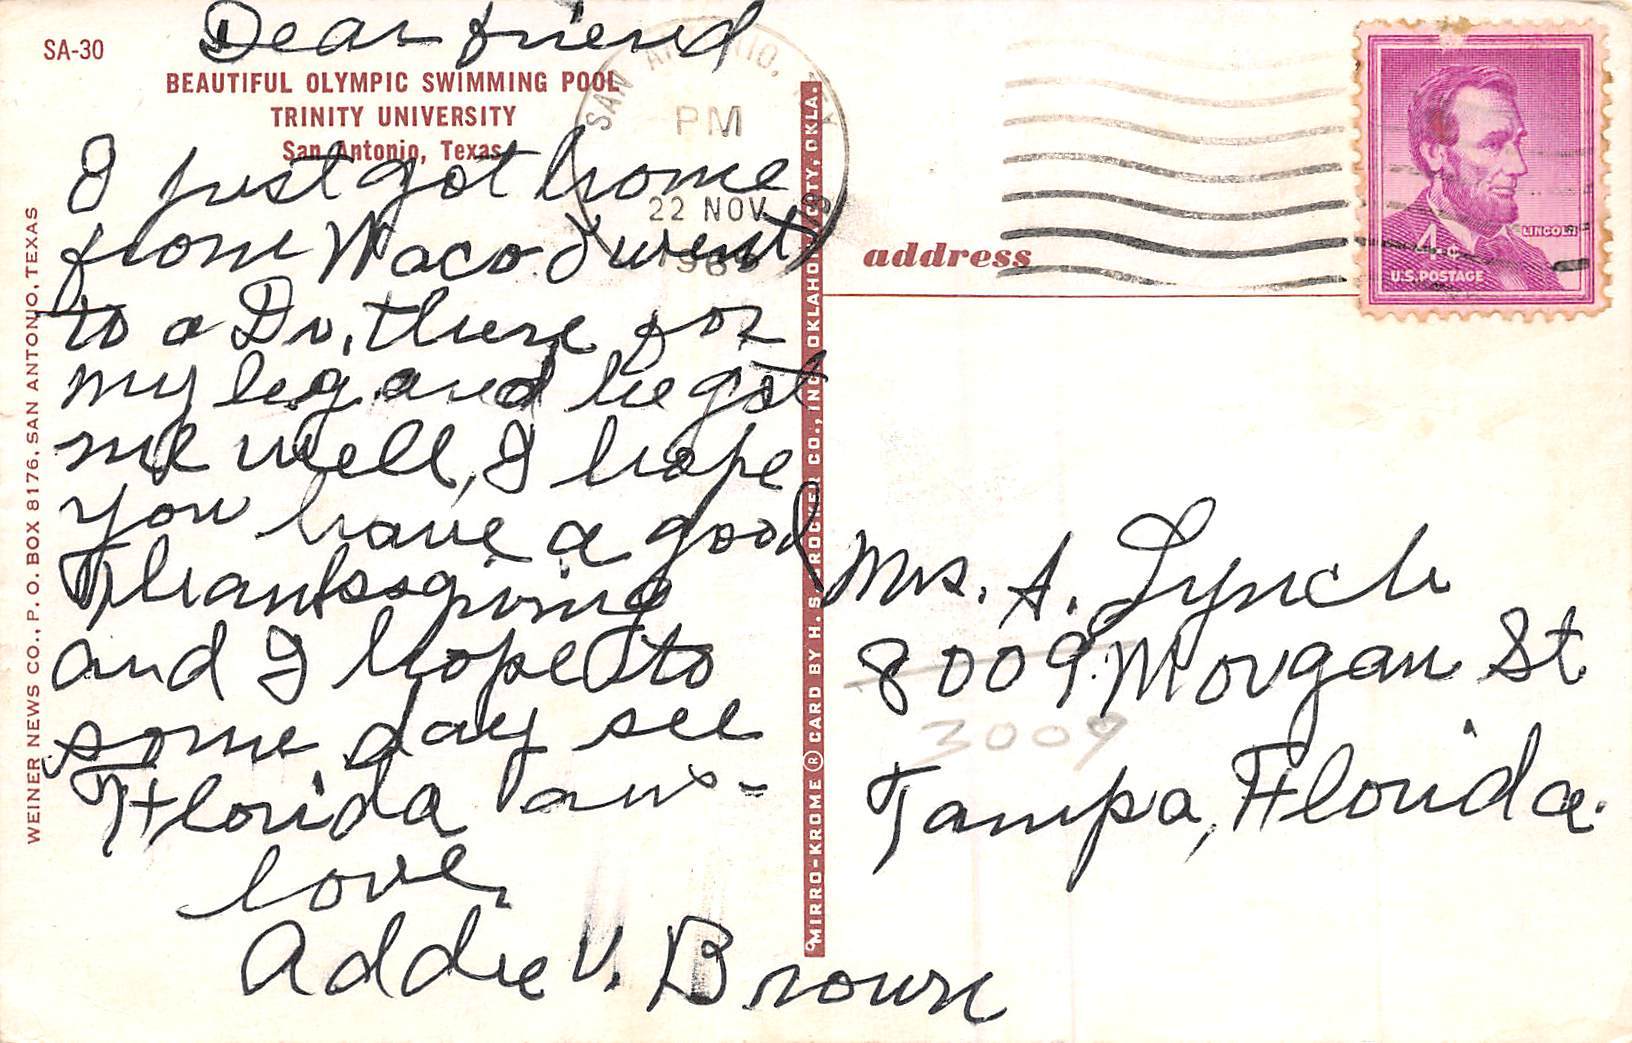 SA-30
Dear friend
BEAUTIFUL OLYMPIC SWIMMING POOL
TRINITY UNIVERSITY
San Antonio, Texas
I just got home
from Waco I went
to a Dr, there for
my leg and he got
me well, I hope
you have a good
Thanksgiving
and I hope to
some day see
Florida
love,
Addie V. Brown
WEINER NEWS CO., P. O. BOX 8176, SAN ANTONIO, TEXAS
MIRRO-KROME ® CARD BY H. S. CROCKER CO., INC. OKLAHOMA CITY, OKLA.
SAN ANTONIO,
PM
22 NOV
LINCOLN
4¢
U.S. POSTAGE
address
Mrs. A. Lynch
8009 Morgan St
3009
Tampa, Florida.